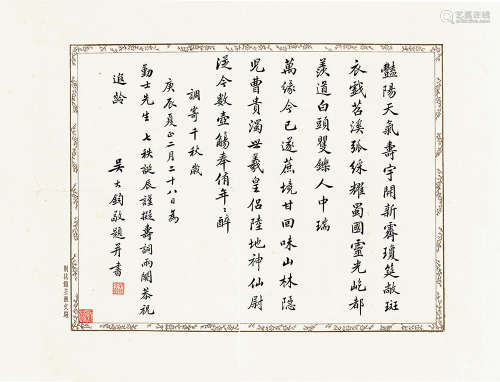 豔陽天氣壽宇開新霽瓊筵敞斑
衣戲苕溪弧綵耀蜀國靈光屹都
羨道白頭矍鑠人中瑞
萬緣今已遂蔗境甘回味山林隱
兒曹貴濁世羲皇侶陸地神仙尉
從今數壺觴奉侑年年醉
調寄千秋歲
庚辰夏正二月二十八日為
勤士先生七秩誕辰謹擬壽詞兩闋恭祝
遐齡
吳大鈞敬題并書
藝狐在线